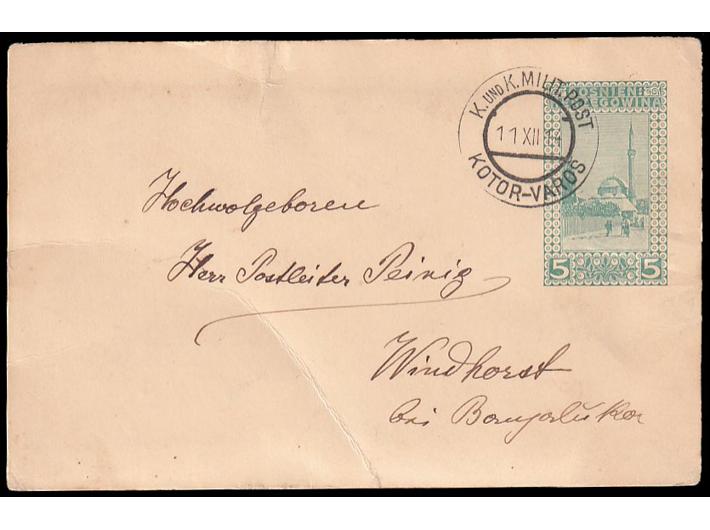 K. UND K. MILIT. POST
11 XII 14
KOTOR-VAROŠ
BOSNIEN-
HERZEGOWINA
5 5
Hochwolgeboren
Herr Postleiter Peinig
Windhorst
bei Banjaluka